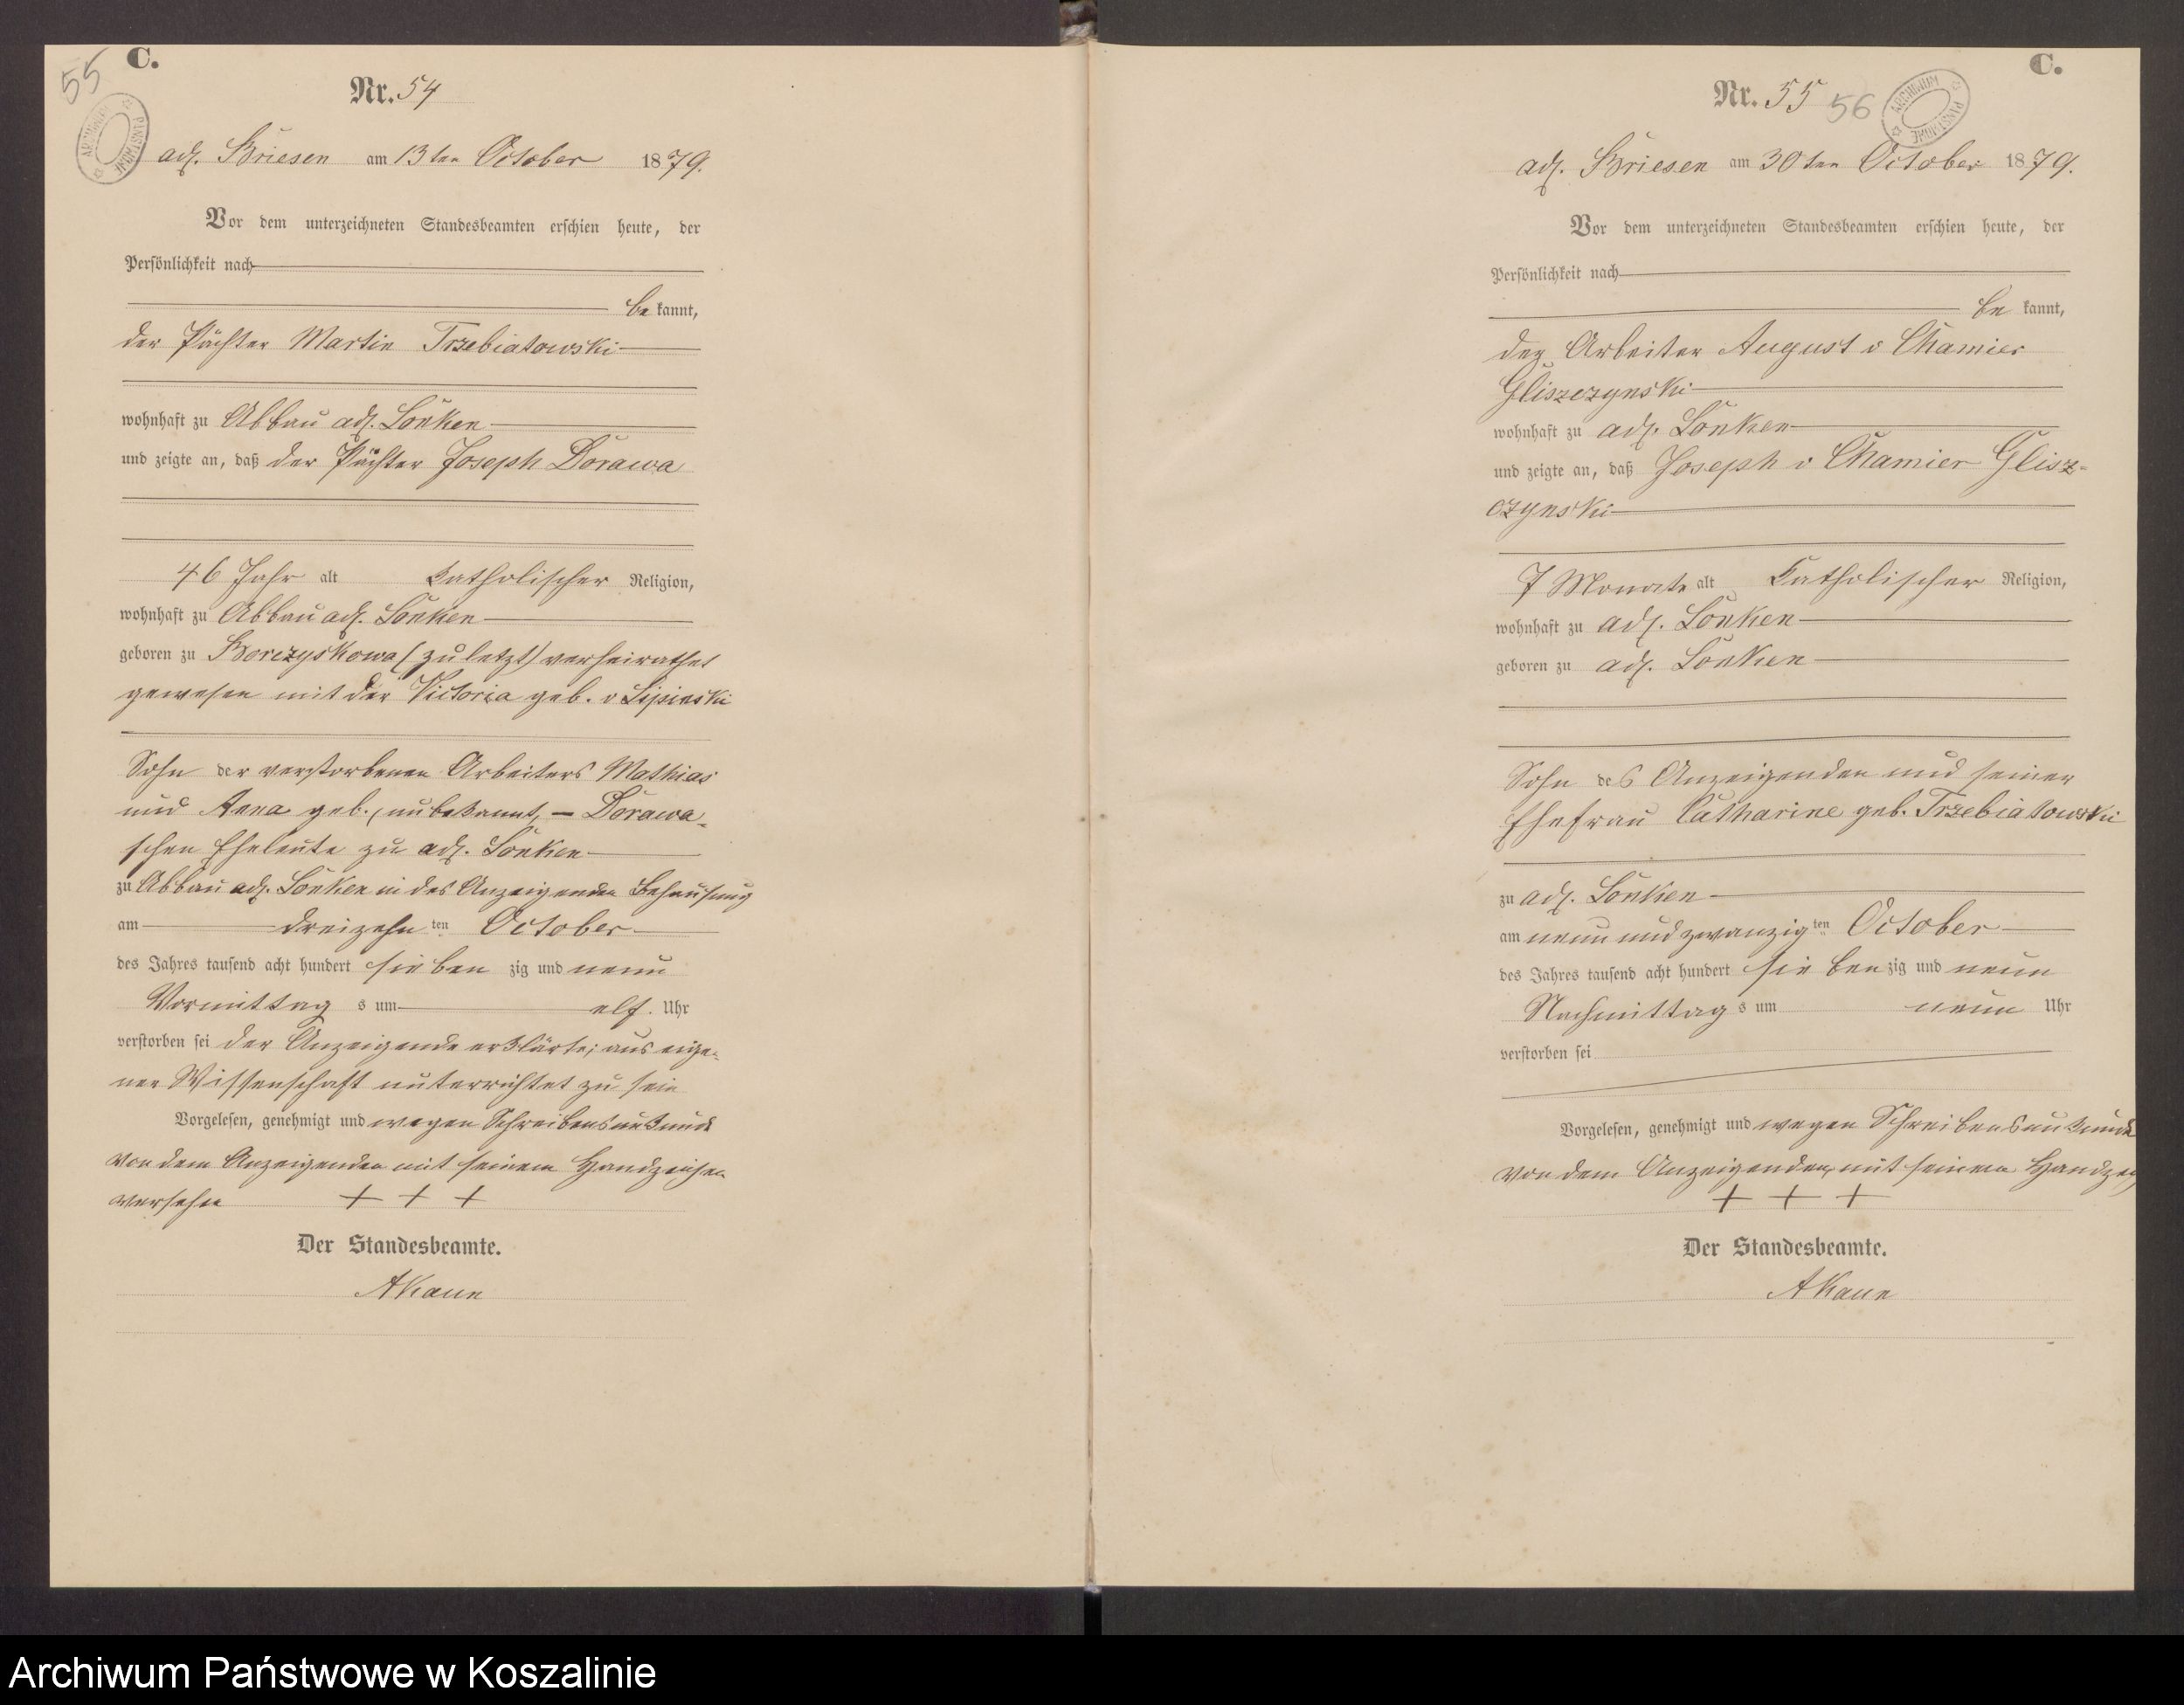 55
C.
Nr. 54
ARCHIWUM PAŃSTWOWE
adl. Briesen am 13ten October 1879.
Vor dem unterzeichneten Standesbeamten erschien heute, der
Persönlichkeit nach
be kannt,
der Pächter Martin Trzebiatowski
wohnhaft zu Abbau adl. Lonken
und zeigte an, daß der Pächter Joseph Dorawa
46 Jahr alt katholischer Religion,
wohnhaft zu Abbau adl. Lonken
geboren zu Borczyskowa (zuletzt) verheirathet
gewesen mit der Victoria geb. v Lipinski
Sohn der verstorbenen Arbeiters Mathias
und Anna geb. unbekannt, – Dorawa-
schen Eheleute zu adl. Lonken
zu Abbau adl. Lonken in des Anzeigenden Behausung
am dreizehn ten October
des Jahres tausend acht hundert sieben zig und neun
Vormittag s um elf. Uhr
verstorben sei der Anzeigende erklärte; aus eige-
ner Wissenschaft unterrichtet zu sein
Vorgelesen, genehmigt und wegen Schreibensunkunde
von dem Anzeigenden mit seinem Handzeichen
versehen + + +
Der Standesbeamte.
AKaun
C.
Nr. 55 56
ARCHIWUM PAŃSTWOWE
adl. Briesen am 30ten October 1879.
Vor dem unterzeichneten Standesbeamten erschien heute, der
Persönlichkeit nach
be kannt,
der Arbeiter August v Chamier
Gliszczynski
wohnhaft zu adl. Lonken
und zeigte an, daß Joseph v Chamier Glisz-
czynski
7 Monate alt katholischer Religion,
wohnhaft zu adl. Lonken
geboren zu adl. Lonken
Sohn des Anzeigenden und seiner
Ehefrau Catharine geb. Trzebiatowski
zu adl. Lonken
am neun und zwanzig ten October
des Jahres tausend acht hundert sieben zig und neun
Nachmittag s um neun Uhr
verstorben sei
Vorgelesen, genehmigt und wegen Schreibensunkunde
von dem Anzeigenden mit seinem Handzei
+ + +
Der Standesbeamte.
AKaun
Archiwum Państwowe w Koszalinie